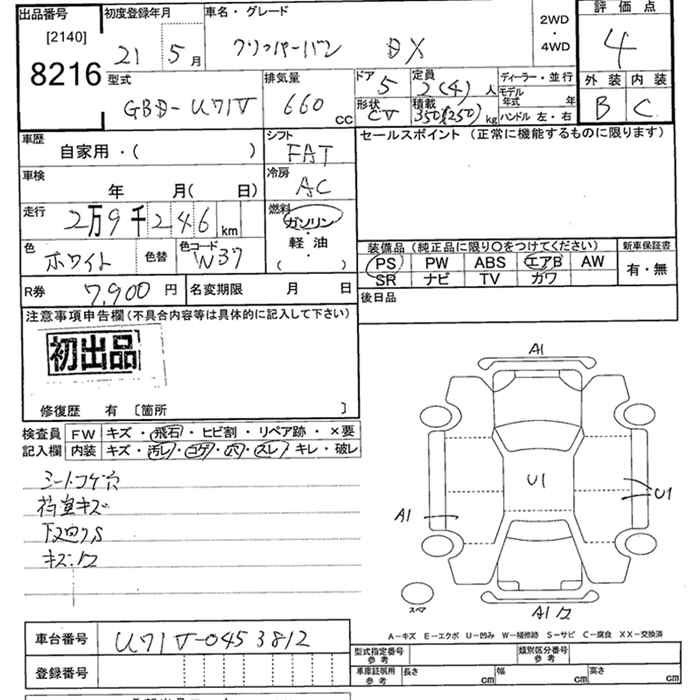 出品番号
[2140]
8216
初度登録年月
21 5 月
車名・グレード
クリッパーバン DX
2WD
・
4WD
評価点
4
外装 内装
B C
型式
GBD-U71V
排気量
660 cc
ドア 5
形状 CV
定員 2(4) 人
積載 350(250) kg
ディーラー・並行
モデル年式 年
ハンドル 左・右
車歴
自家用・( )
シフト
FAT
セールスポイント (正常に機能するものに限ります)
車検
年 月( 日)
冷房
AC
走行
2万9千246 km
燃料
ガソリン
・
軽油
・
( )
色
ホワイト
色替
色コード
W37
装備品 (純正品に限り○をつけてください)
PS PW ABS エアB AW
SR ナビ TV カワ
新車保証書
有・無
R券 7,900 円
名変期限 月 日
後日品
注意事項申告欄(不具合内容等は具体的に記入して下さい)
初出品
修復歴 有 〔箇所 〕
検査員
記入欄
FW キズ・飛石・ヒビ割・リペア跡・×要
内装 キズ・汚レ・コゲ・穴・スレ・キレ・破レ
シートコゲ穴
荷室キズ
下廻りS
A1
U1
U1
A1
スペア
A1
A-キズ E-エクボ U-凹み W-補修跡 S-サビ C-腐食 XX-交換済
車台番号
U71V-0453812
登録番号
型式指定番号
参考
類別区分番号
参考
車庫証明用
参考
長さ cm
幅 cm
高さ cm